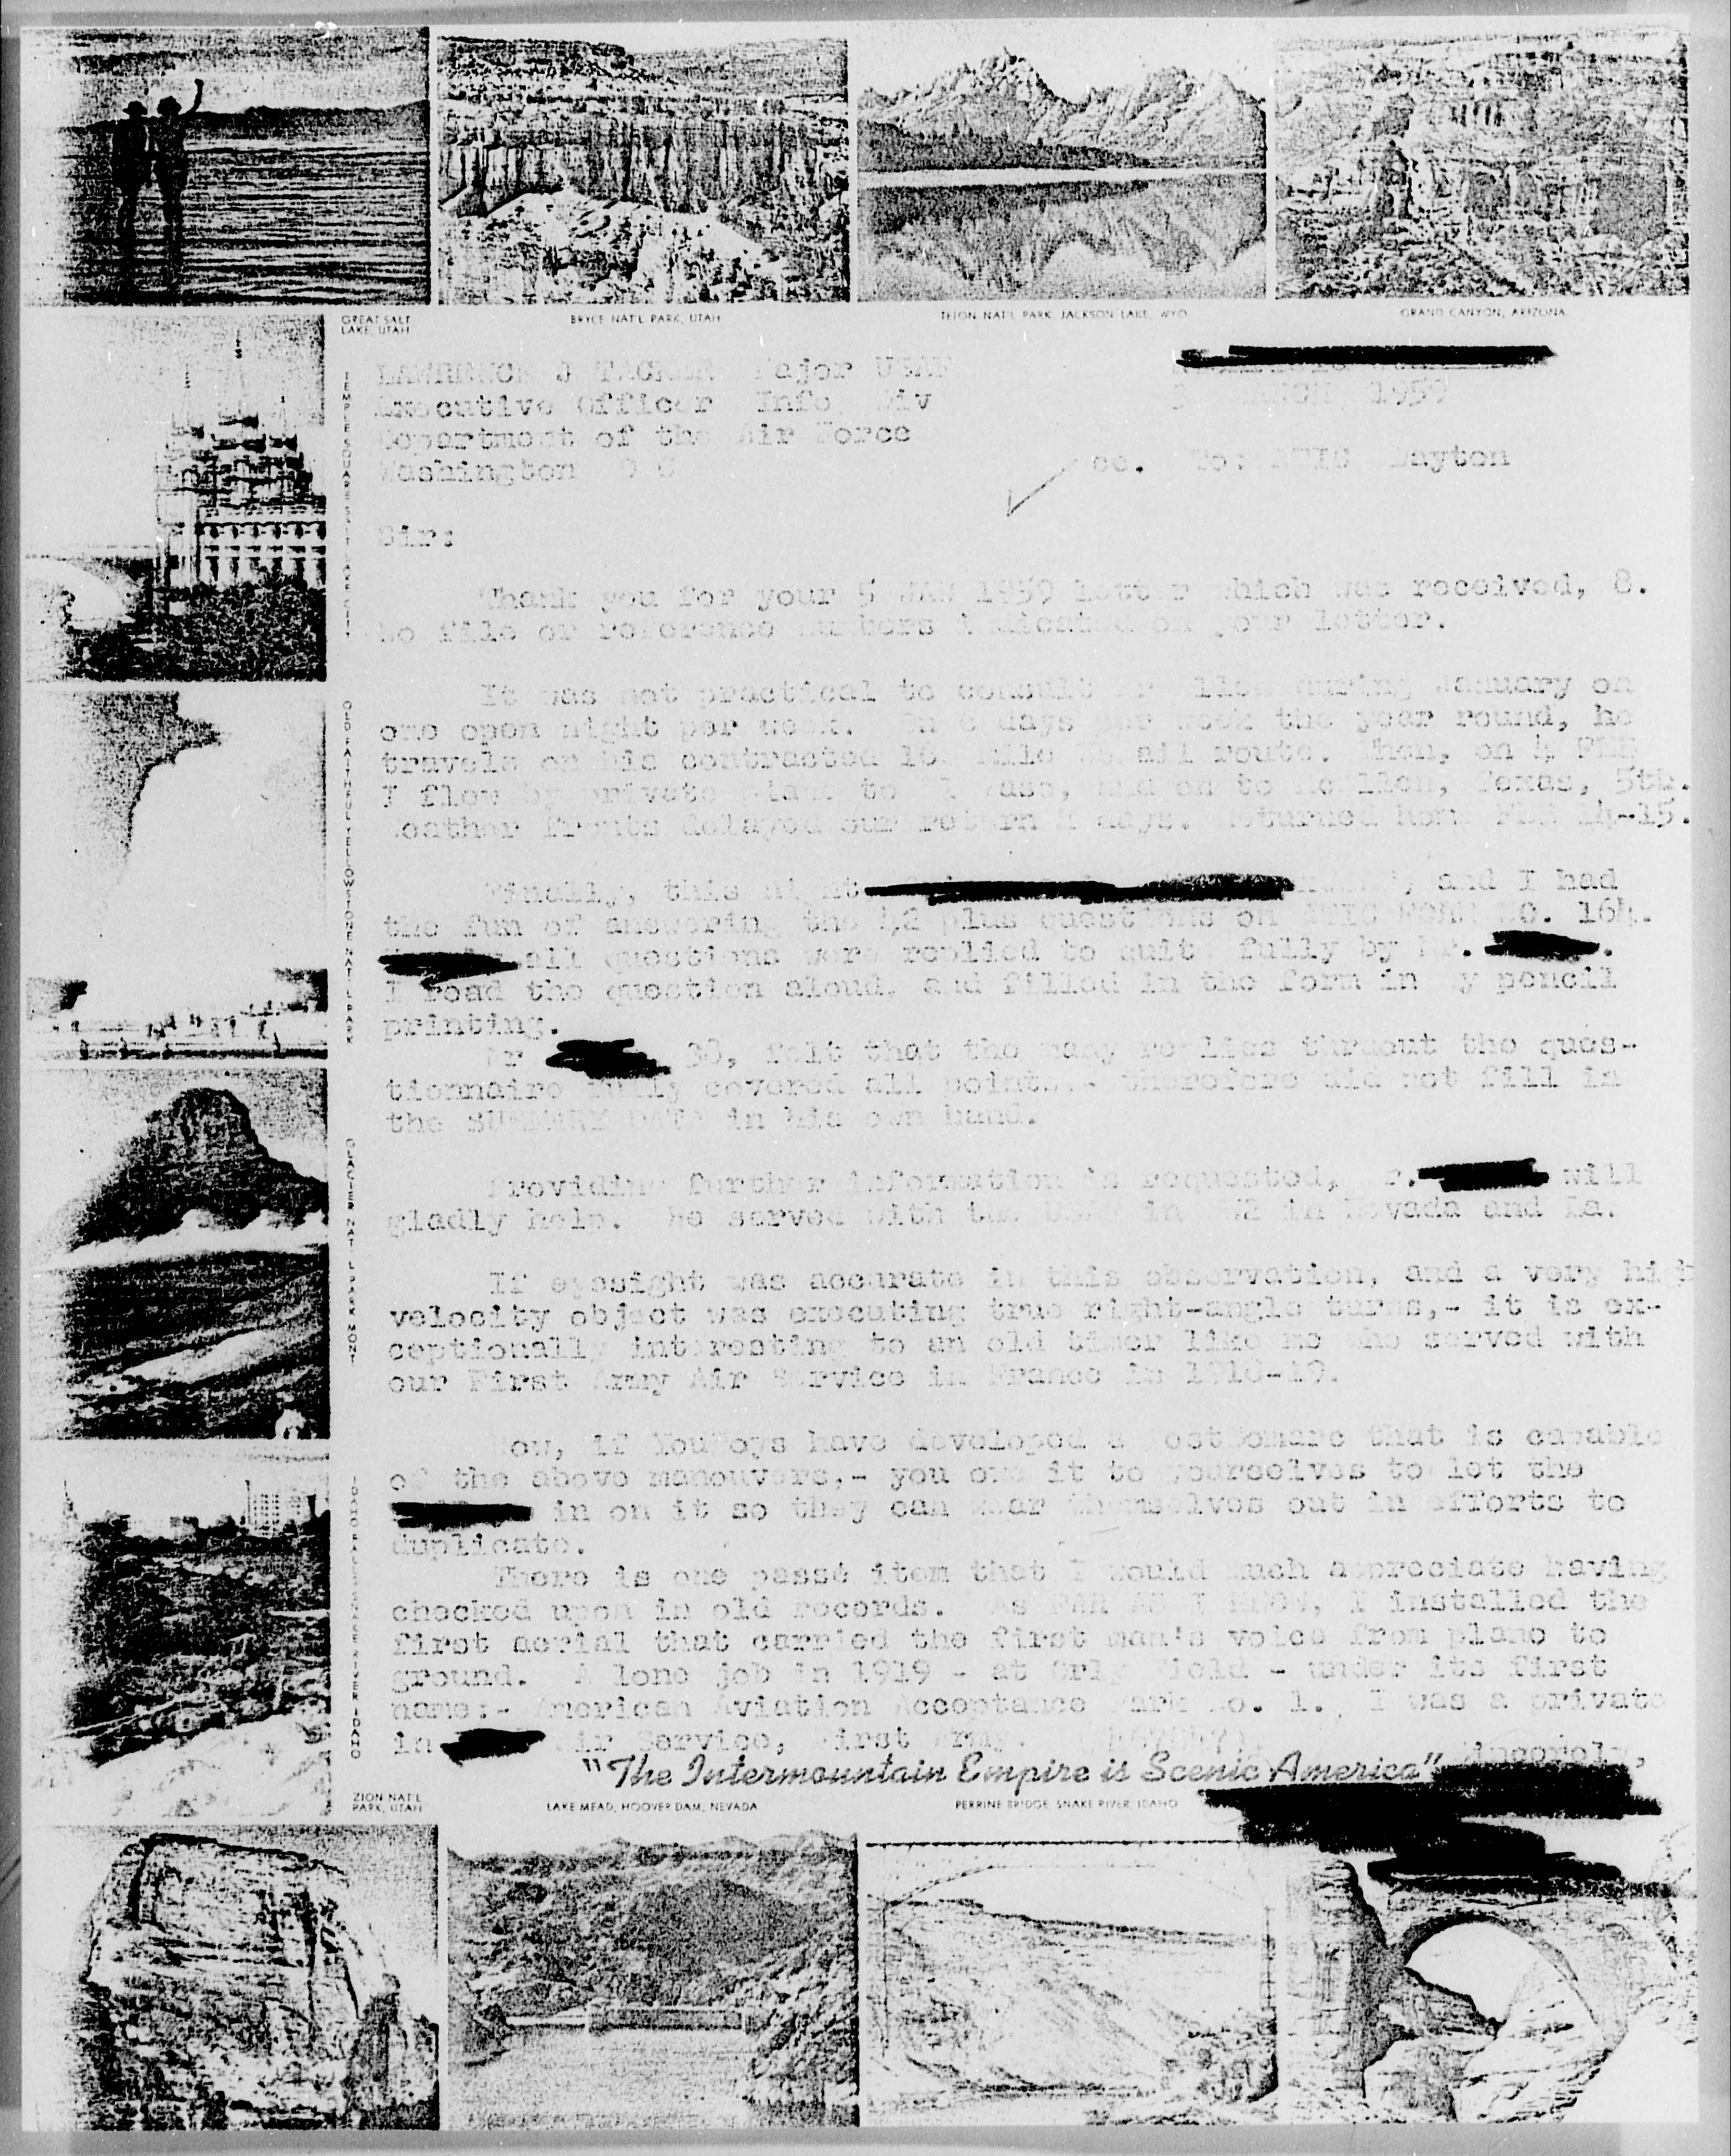 GREAT SALT
LAKE, UTAH
BRYCE NAT'L PARK, UTAH
TETON NAT'L PARK JACKSON LAKE, WYO
GRAND CANYON, ARIZONA
TEMPLE SQUARE SALT LAKE CITY
OLD FAITHFUL YELLOWSTONE NAT'L PARK
GLACIER NAT'L PARK MONT
IDAHO FALLS SNAKE RIVER IDAHO
LAWRENCE J TACKER Major USAF
Executive Officer Info Div
Department of the Air Force
Washington D C
MARCH 1959
cc. To: ATIC Dayton
Sir:
Thank you for your 5 JAN 1959 letter which was received, 8.
No file or reference numbers indicated on your letter.
It was not practical to consult during January on
one open night per week. 6 days per week the year round, he
travels on his contracted mile mail route. Then, on 4 FEB
I flew by private plane to El Paso, and on to McAllen, Texas, 5th.
Weather fronts delayed our return days. Returned home FEB 14-15.
Finally, this night and I had
the fun of answering the 42 plus questions on ATIC FORM NO. 164.
all questions were replied to quite fully by Mr.
I read the question aloud, and filled in the form in my pencil
printing.
Mr 30, felt that the many replies thruout the ques-
tionnaire fully covered all points,- therefore did not fill in
the SUMMARY DATA in his own hand.
Providing further information is requested, will
gladly help. He served with the in in Nevada and La.
If eyesight was accurate in this observation, and a very high
velocity object was executing true right-angle turns,- it is ex-
ceptionally interesting to an old timer like me who served with
our First Army Air Service in France in 1918-19.
Now, if YouBoys have developed a that is capable
of the above manouvers,- you owe it to yourselves to let the
in on it so they can wear themselves out in efforts to
duplicate.
There is one passé item that I would much appreciate having
checked upon in old records. As FAR AS I KNOW, I installed the
first aerial that carried the first man's voice from plane to
ground. A lone job in 1919 - at Orly Field - under its first
name:- American Aviation Acceptance Park No. 1. I was a private
in Air Service, First Army.
Sincerely,
"The Intermountain Empire is Scenic America"
ZION NAT'L
PARK, UTAH
LAKE MEAD, HOOVER DAM, NEVADA
PERRINE BRIDGE SNAKE RIVER, IDAHO